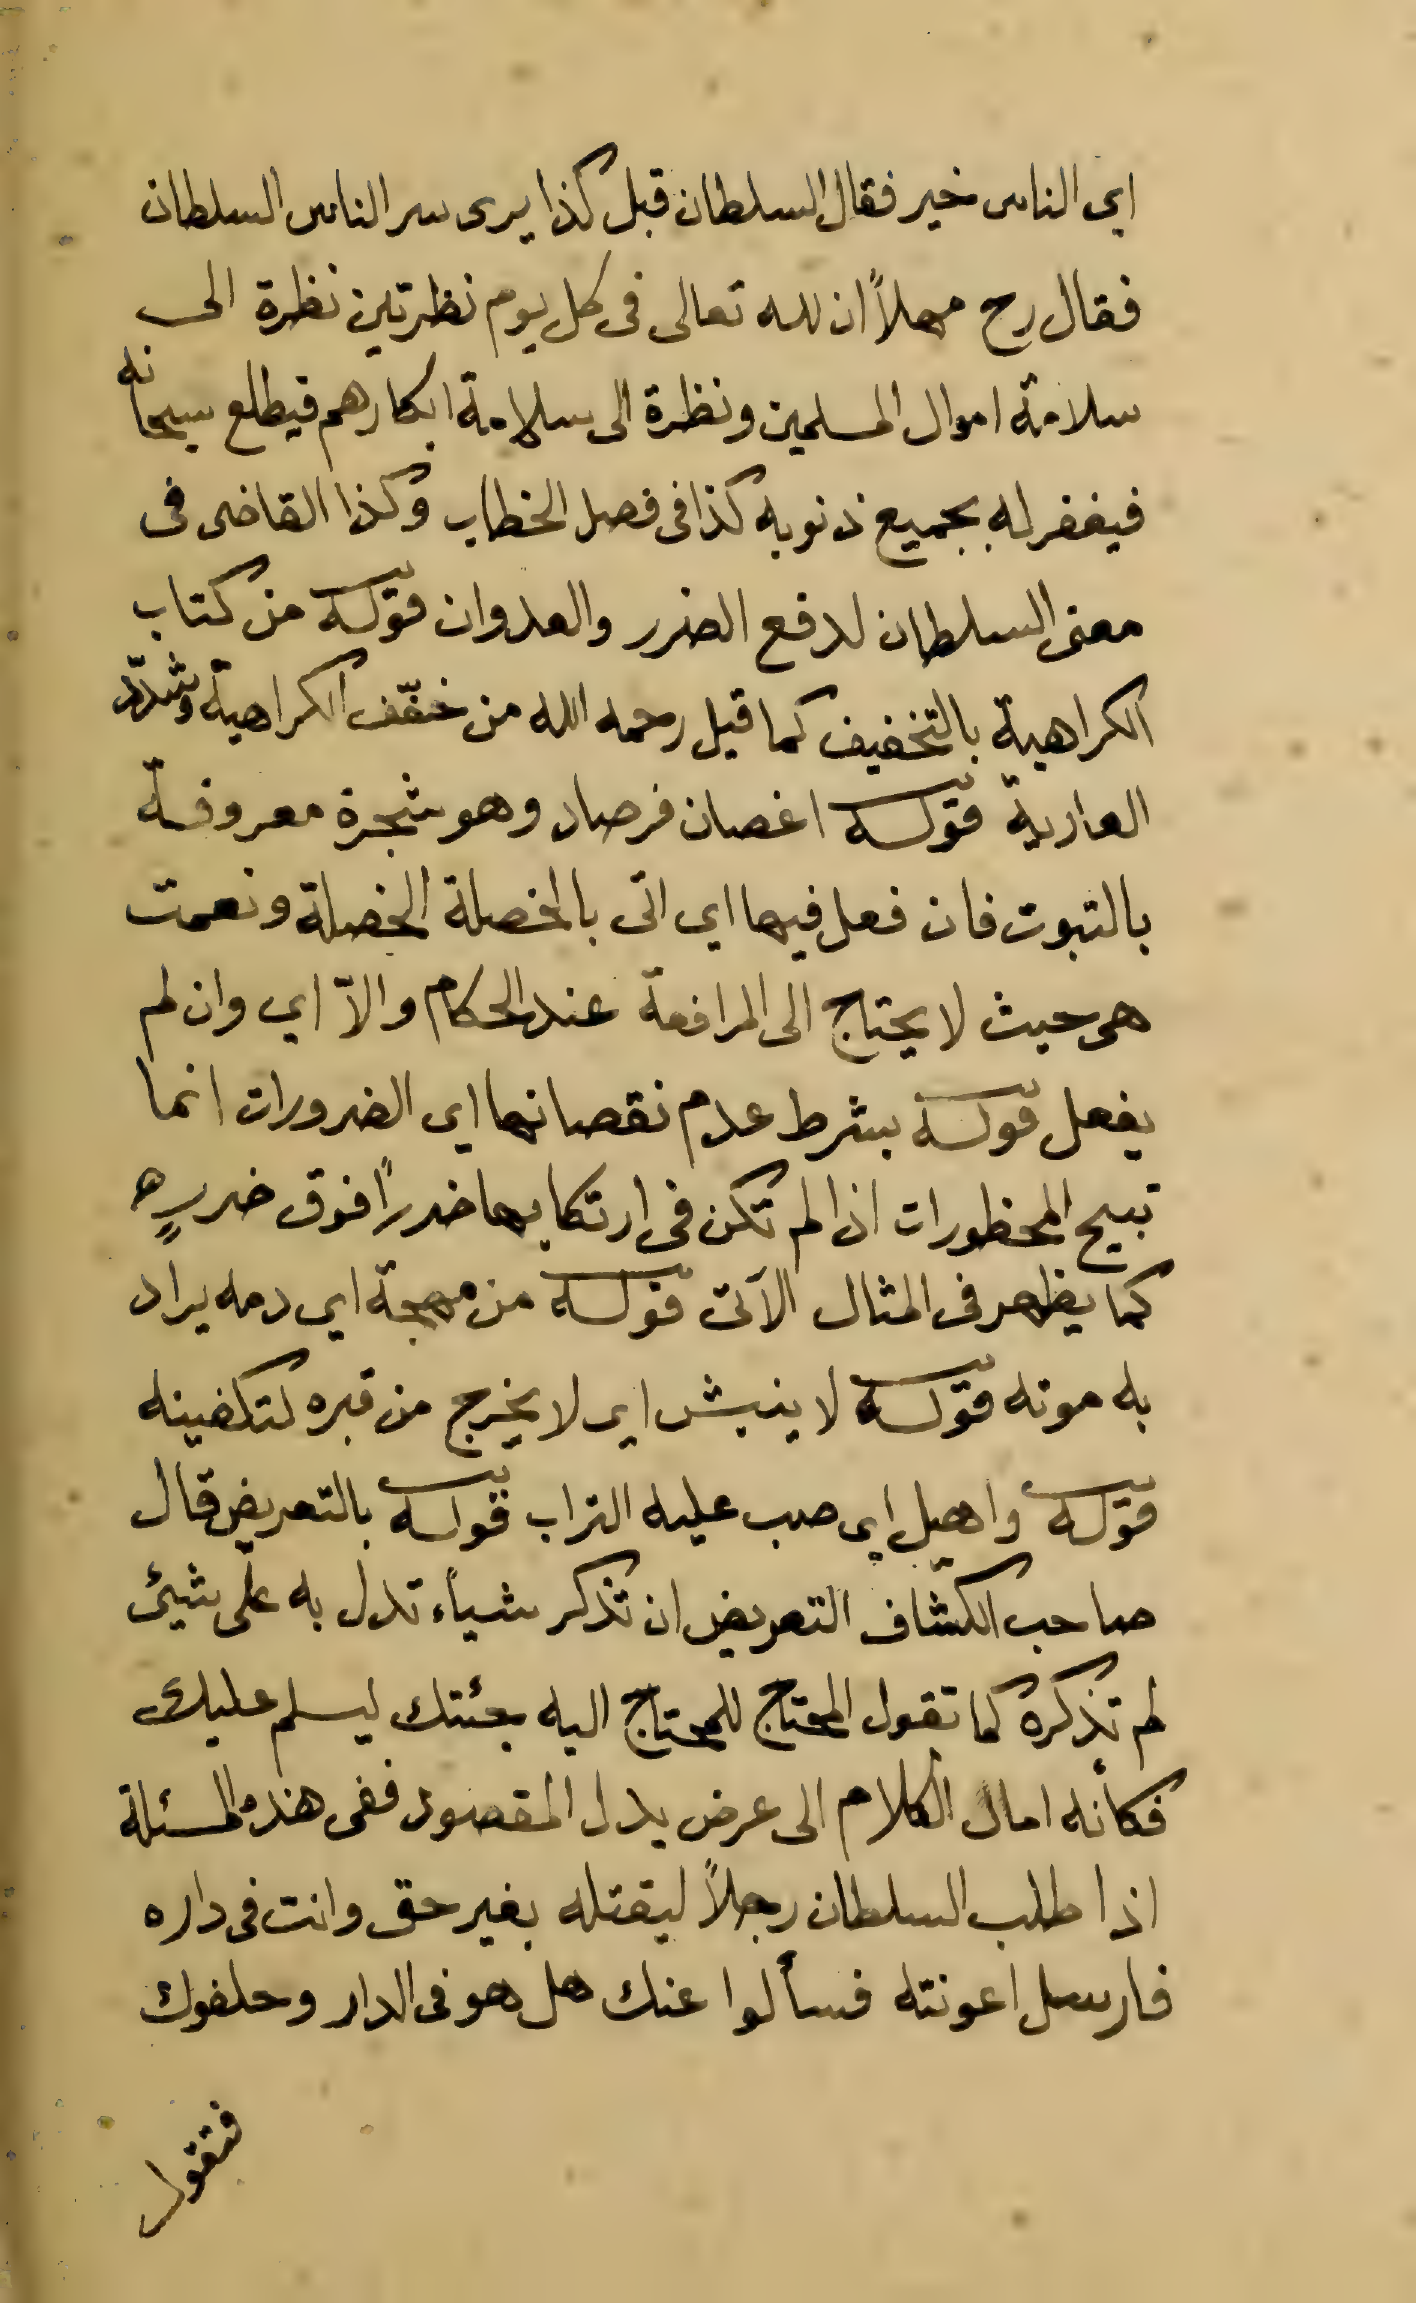 اي الناس خير فقال السلطان قبل كذا يرى سر الناس السلطان
فقال رح مهلاً ان لله تعالى فى كل يوم نظرتين نظرة الى
سلامة اموال المسلمين ونظرة الى سلامة ابكارهم فيطلع سبحانه
فيغفر له بجميع ذنوبه كذا فى فصل الخطاب وكذا القاضى فى
معنى السلطان لدفع الضرر والعدوان قوله من كتاب
الكراهية بالتخفيف كما قيل رحمه الله من خفّف الكراهية وشدّد
العارية قوله اغصان فرصاد وهو شجرة معروفة
بالتبوت فان فعل فيها اي اتى بالخصلة الخصلة ونعمت
هى حيث لا يحتاج الى المرافعة عند الحكام والاّ اي وان لم
يفعل قوله بشرط عدم نقصانها اي الضرورات انما
تبيح المحظورات اذا لم تكن فى ارتكابها ضررًا فوق ضرره
كما يظهر فى المثال الآتى قوله من مهجة اي دمه يراد
به موته قوله لا ينبش اي لا يخرج من قبره لتكفينه
قوله واهيل اي صب عليه التراب قوله بالتعريض قال
صاحب الكشّاف التعريض ان تذكر شيأ تدل به على شيئ
لم تذكره كما تقول المحتاج للمحتاج اليه جئتك ليسلم عليك
فكأنه امال الكلام الى عرض يدل المقصود ففى هذه المسئلة
اذا طلب السلطان رجلاً ليقتله بغير حق وانت فى داره
فارسل اعونته فسألوا عنك هل هو فى الدار وحلفوك
فتقول